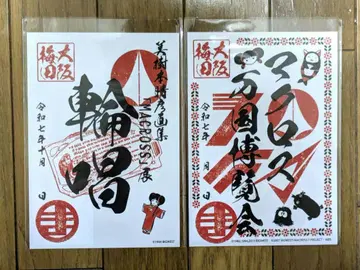 大阪
梅田
美樹本晴彦画集
MACROSS 展
輪唱
令和七年十月 日
大阪
梅田
マクロス
万国博覧会
令和七年十月 日